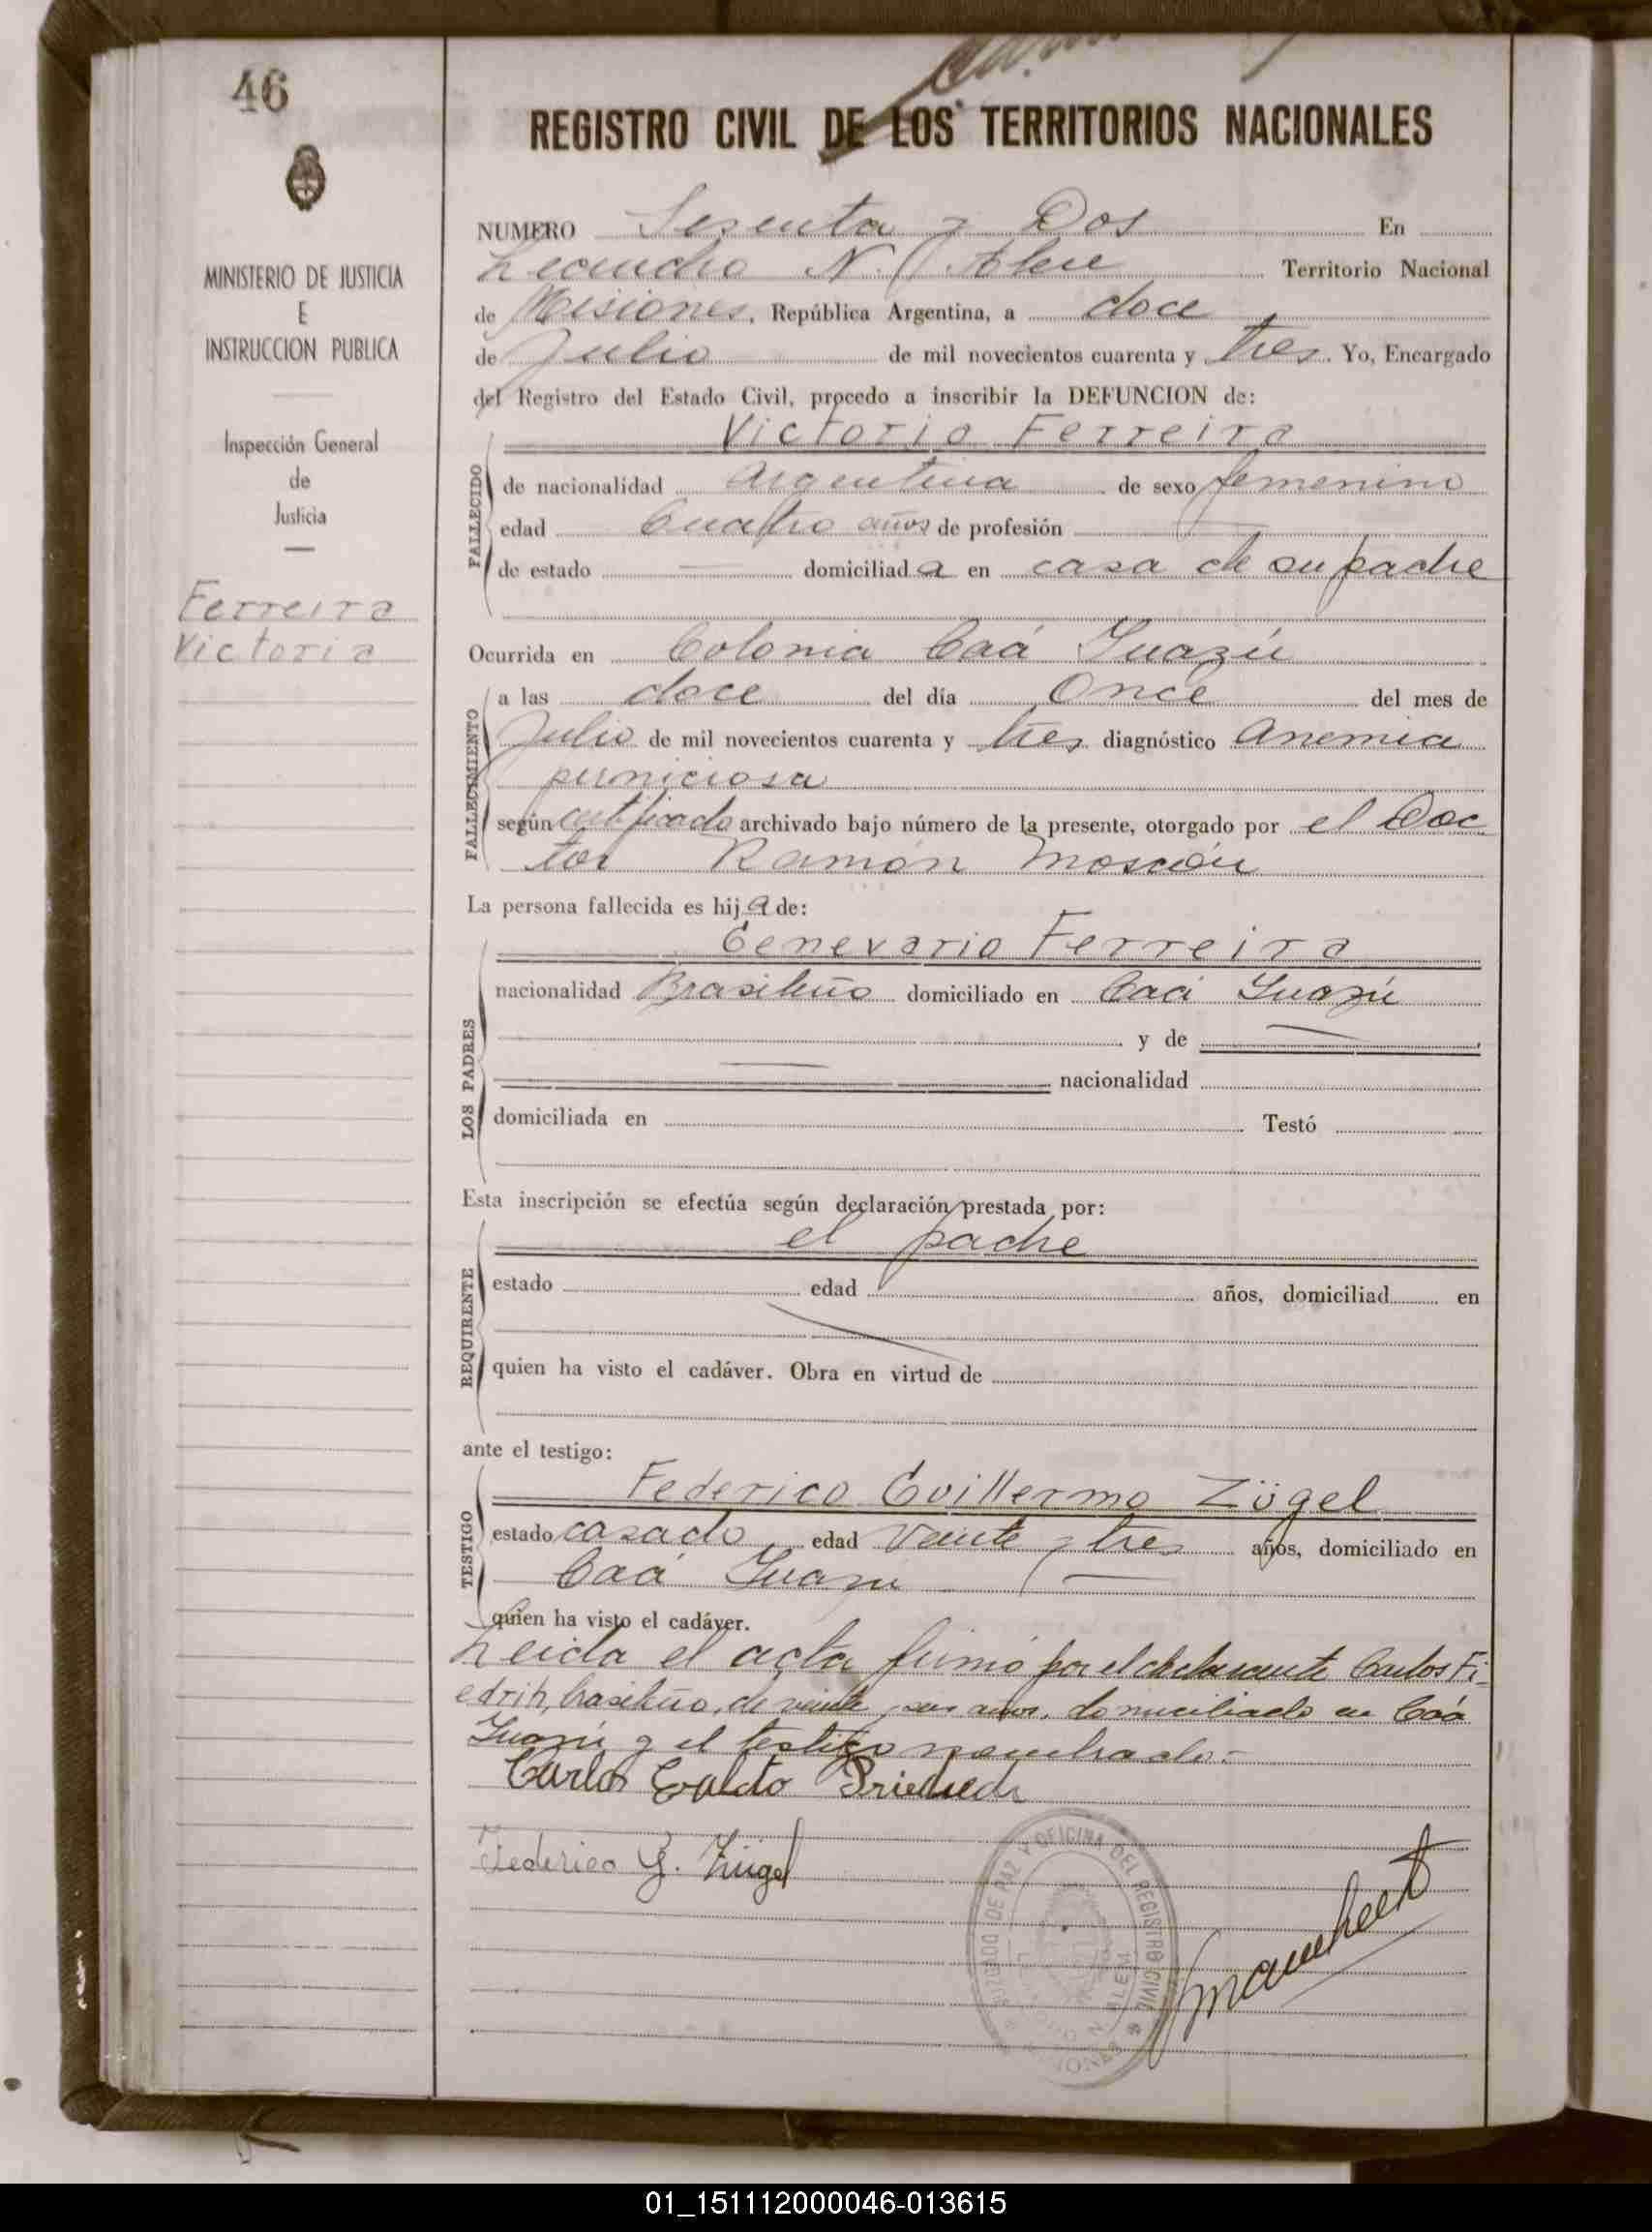 46
REGISTRO CIVIL DE LOS TERRITORIOS NACIONALES
MINISTERIO DE JUSTICIA
E
INSTRUCCION PUBLICA
Inspección General
de
Justicia
Ferreira
Victoria
NUMERO Sesenta y Dos En
Leandro N. Alem Territorio Nacional
de Misiones, República Argentina, a doce
de Julio de mil novecientos cuarenta y tres. Yo, Encargado
del Registro del Estado Civil, procedo a inscribir la DEFUNCION de:
Victoria Ferreira
FALLECIDO
de nacionalidad Argentina de sexo femenino
edad Cuatro años de profesión
de estado domiciliada en casa de su padre
Ocurrida en Colonia Caá Guazú
FALLECIMIENTO
a las doce del día Once del mes de
Julio de mil novecientos cuarenta y tres diagnóstico Anemia
perniciosa
según certificado archivado bajo número de la presente, otorgado por el Doc
tor Ramón
La persona fallecida es hija de:
LOS PADRES
Genevario Ferreira
nacionalidad Brasileño domiciliado en Caá Guazú
y de
nacionalidad
domiciliada en Testó
Esta inscripción se efectúa según declaración prestada por:
REQUIRENTE
el padre
estado edad años, domiciliad en
quien ha visto el cadáver. Obra en virtud de
ante el testigo:
TESTIGO
Federico Guillermo Zügel
estado casado edad veinte y tres años, domiciliado en
Caá Guazu
quien ha visto el cadáver.
Leida el acta firmó por el declarante Carlos Fi-
edrih, brasileño, de veinte y seis años, domiciliado en Caá
Guazú y el testigo nombrado.-
Carlos
Federico G. Zügel
JUZGADO DE PAZ Y OFICINA DEL REGISTRO CIVIL
N. ALEM
01_151112000046-013615